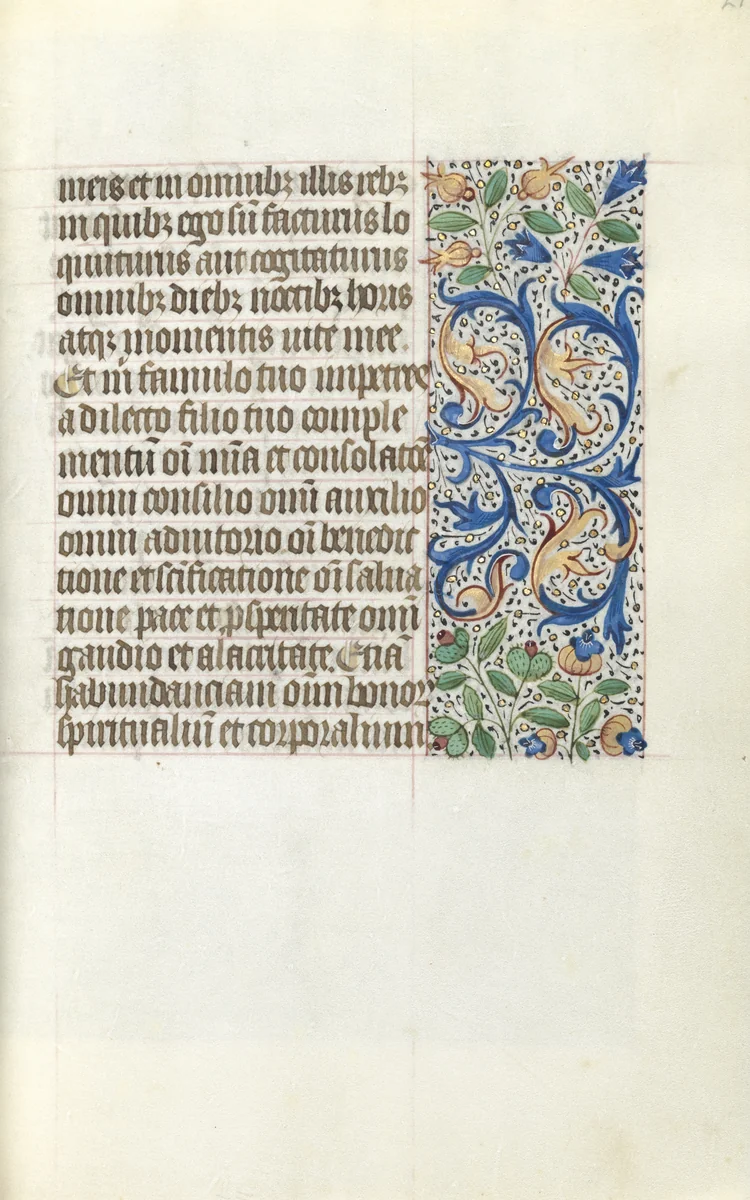 meis et in omnibꝫ illis rebꝫ
in quibꝫ ego sū facturus lo
quiturus aut cogitaturus
omnibꝫ diebꝫ noctibꝫ horis
atqꝫ momentis uite mee.
Et m̄ famulo tuo impetres
a dilecto filio tuo comple
mentū oī mīa et consolatōe
omni consilio omī auxilio
omni adiutorio oī benedic
tione et scīficatione oī salua
tione pace et ꝓsperitate omī
gaudio et alacritate. Etiā
habundanciam oīm bonoꝝ
spiritualiū et corporalium.